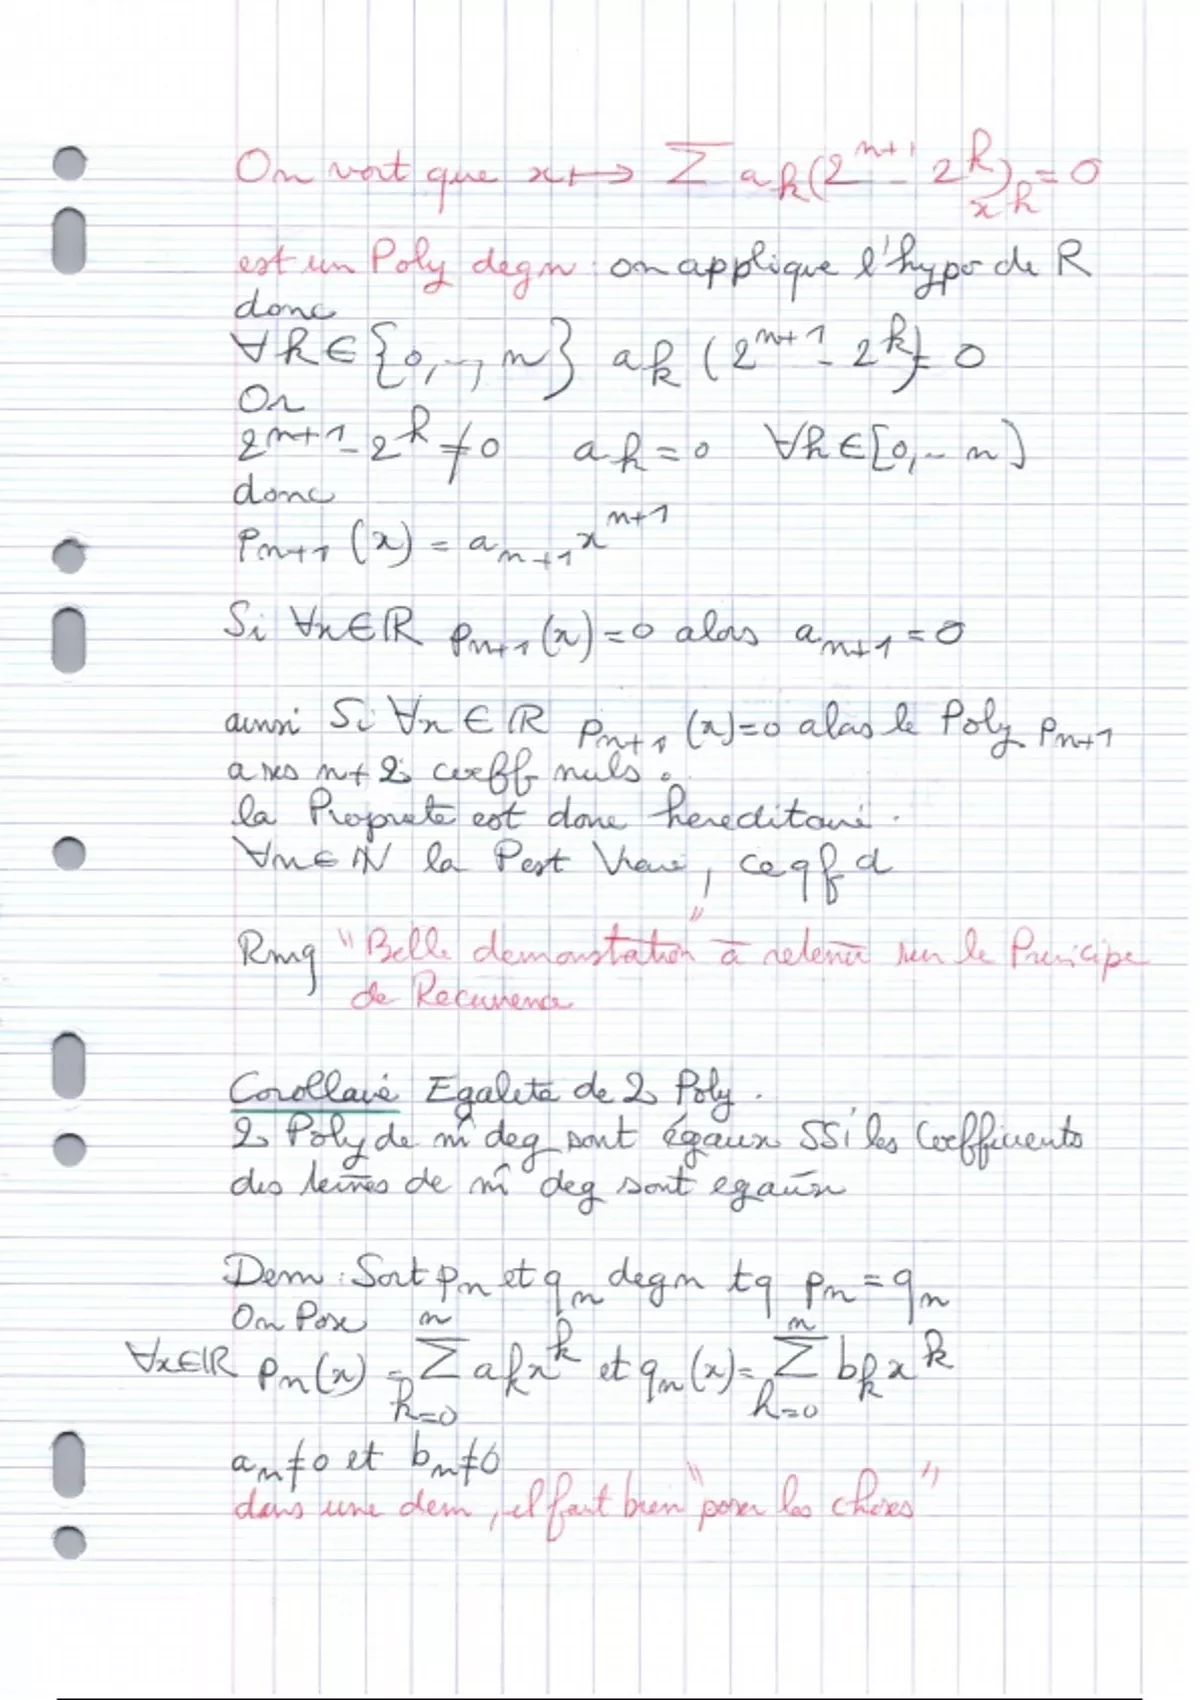 On voit que x ↦ Σ ak(2^{n+1} - 2^k) x^k = 0
est un Poly deg n : on applique l'hypo de R
donc
∀k ∈ {0,..,n} ak (2^{n+1} - 2^k) = 0
Or
2^{n+1} - 2^k ≠ 0 ak = 0 ∀k ∈ [0,.. n]
donc
P_{n+1} (x) = a_{n+1} x^{n+1}
Si ∀x ∈ ℝ P_{n+1} (x) = 0 alors a_{n+1} = 0
ainsi Si ∀x ∈ ℝ P_{n+1} (x) = 0 alors le Poly P_{n+1}
a ses n+2 coeff nuls.
la Propriete est donc hereditaire.
∀n ∈ ℕ la P est Vraie, ceqfd
Rmq "Belle demonstration" à retenir sur le Principe
de Recurrence
Corollaire Egalité de 2 Poly.
2 Poly de m̂ deg sont égaux SSi les Coefficients
des termes de m̂ deg sont egaux
Dem : Soit Pn et qn deg n tq Pn = qn
On Pose
∀x∈ℝ Pn(x) = Σ_{k=0}^{n} ak x^k et qn(x) = Σ_{k=0}^{n} bk x^k
an ≠ 0 et bn ≠ 0
dans une dem, il faut bien "poser les choses"